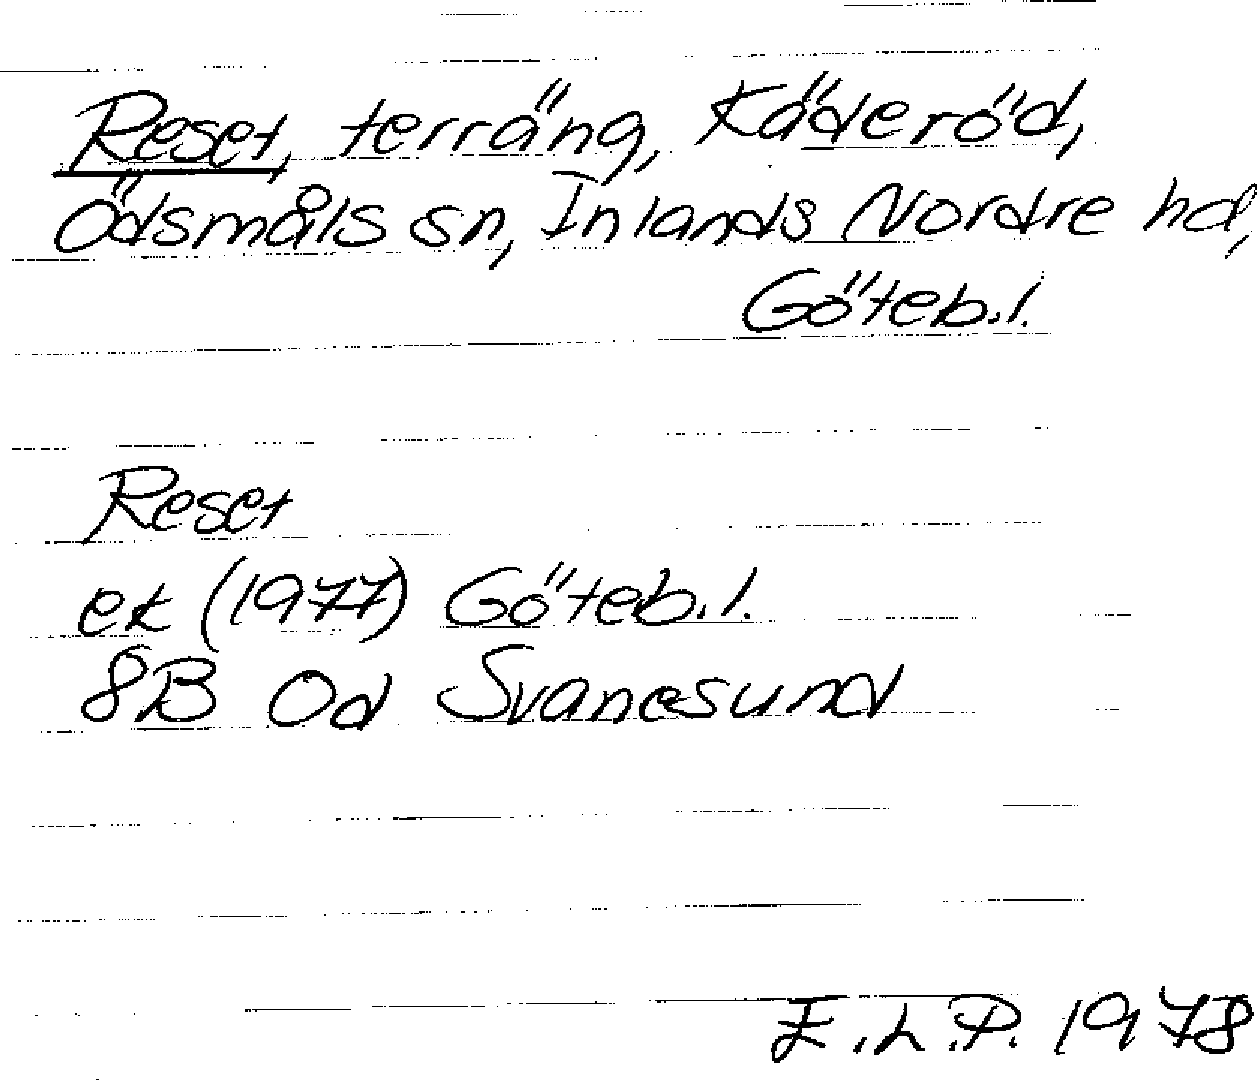 Reset, terräng, Käderöd,
Ödsmåls sn, Inlands Nordre hd,
Göteb.l.
Reset
ek (1977) Göteb.l.
8B 0d Svanesund
E.L.P. 1978